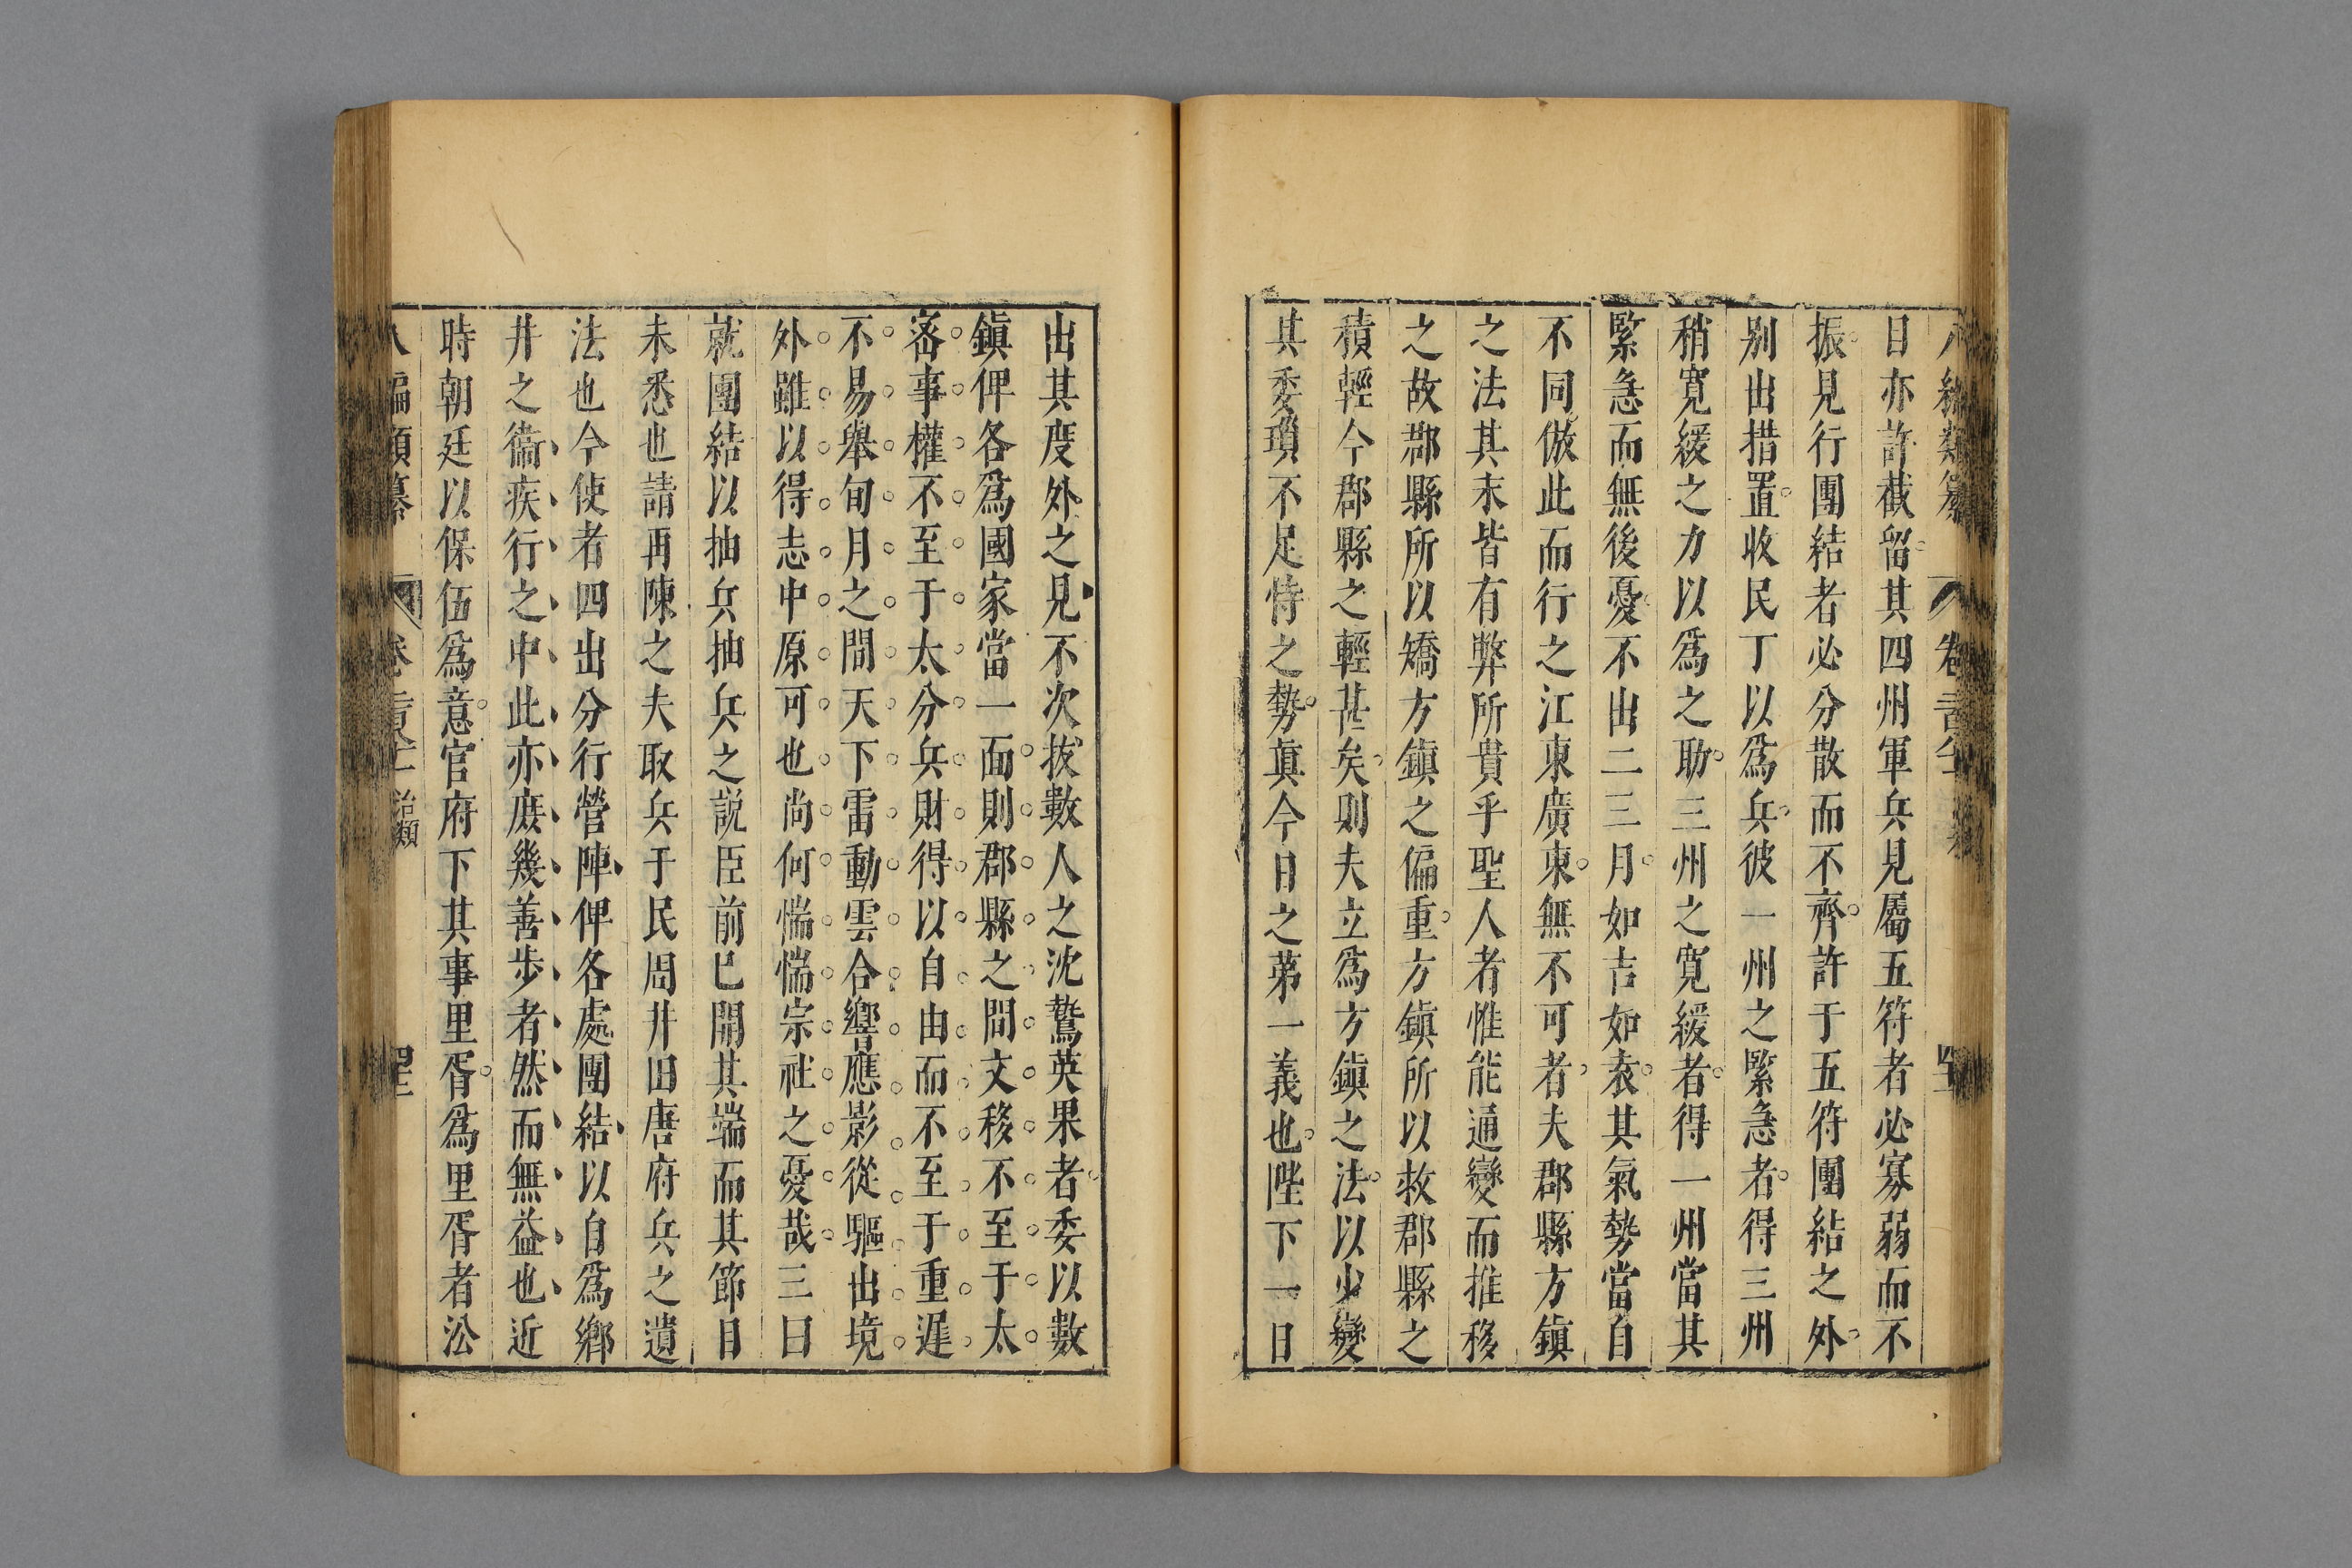 目亦許截留其四州軍兵見屬五符者必寡弱而不
振見行團結者必分散而不齊許于五符團結之外
别出措置收民丁以爲兵彼一州之緊急者得三州
稍寬緩之力以爲之助三州之寛緩者得一州當其
緊急而無後憂不出二三月如吉如袁其氣勢當自
不同倣此而行之江東廣東無不可者夫郡縣方鎮
之法其末皆有弊所貴乎聖人者惟能通變而推移
之故郡縣所以矯方鎮之偏重方鎮所以救郡縣之
積輕今郡縣之輕甚矣則夫立爲方鎮之法以少變
其委瑣不足恃之勢真今日之第一義也陛下一日
出其度外之見不次拔數人之沈鷙英果者委以數
鎮俾各爲國家當一面則郡縣之間文移不至于太
宻事權不至于太分兵財得以自由而不至于重遲
不易舉旬月之間天下雷動雲合響應影從驅出境
外雖以得志中原可也尚何惴惴宗社之憂哉三曰
就團結以抽兵抽兵之説臣前已開其端而其節目
未悉也請再陳之夫取兵于民周井田唐府兵之遺
法也今使者四出分行營陣俾各處團結以自爲鄉
井之衞疾行之中此亦庶幾善步者然而無益也近
時朝廷以保伍爲意官府下其事里胥爲里胥者㳂
編類纂 卷 治類